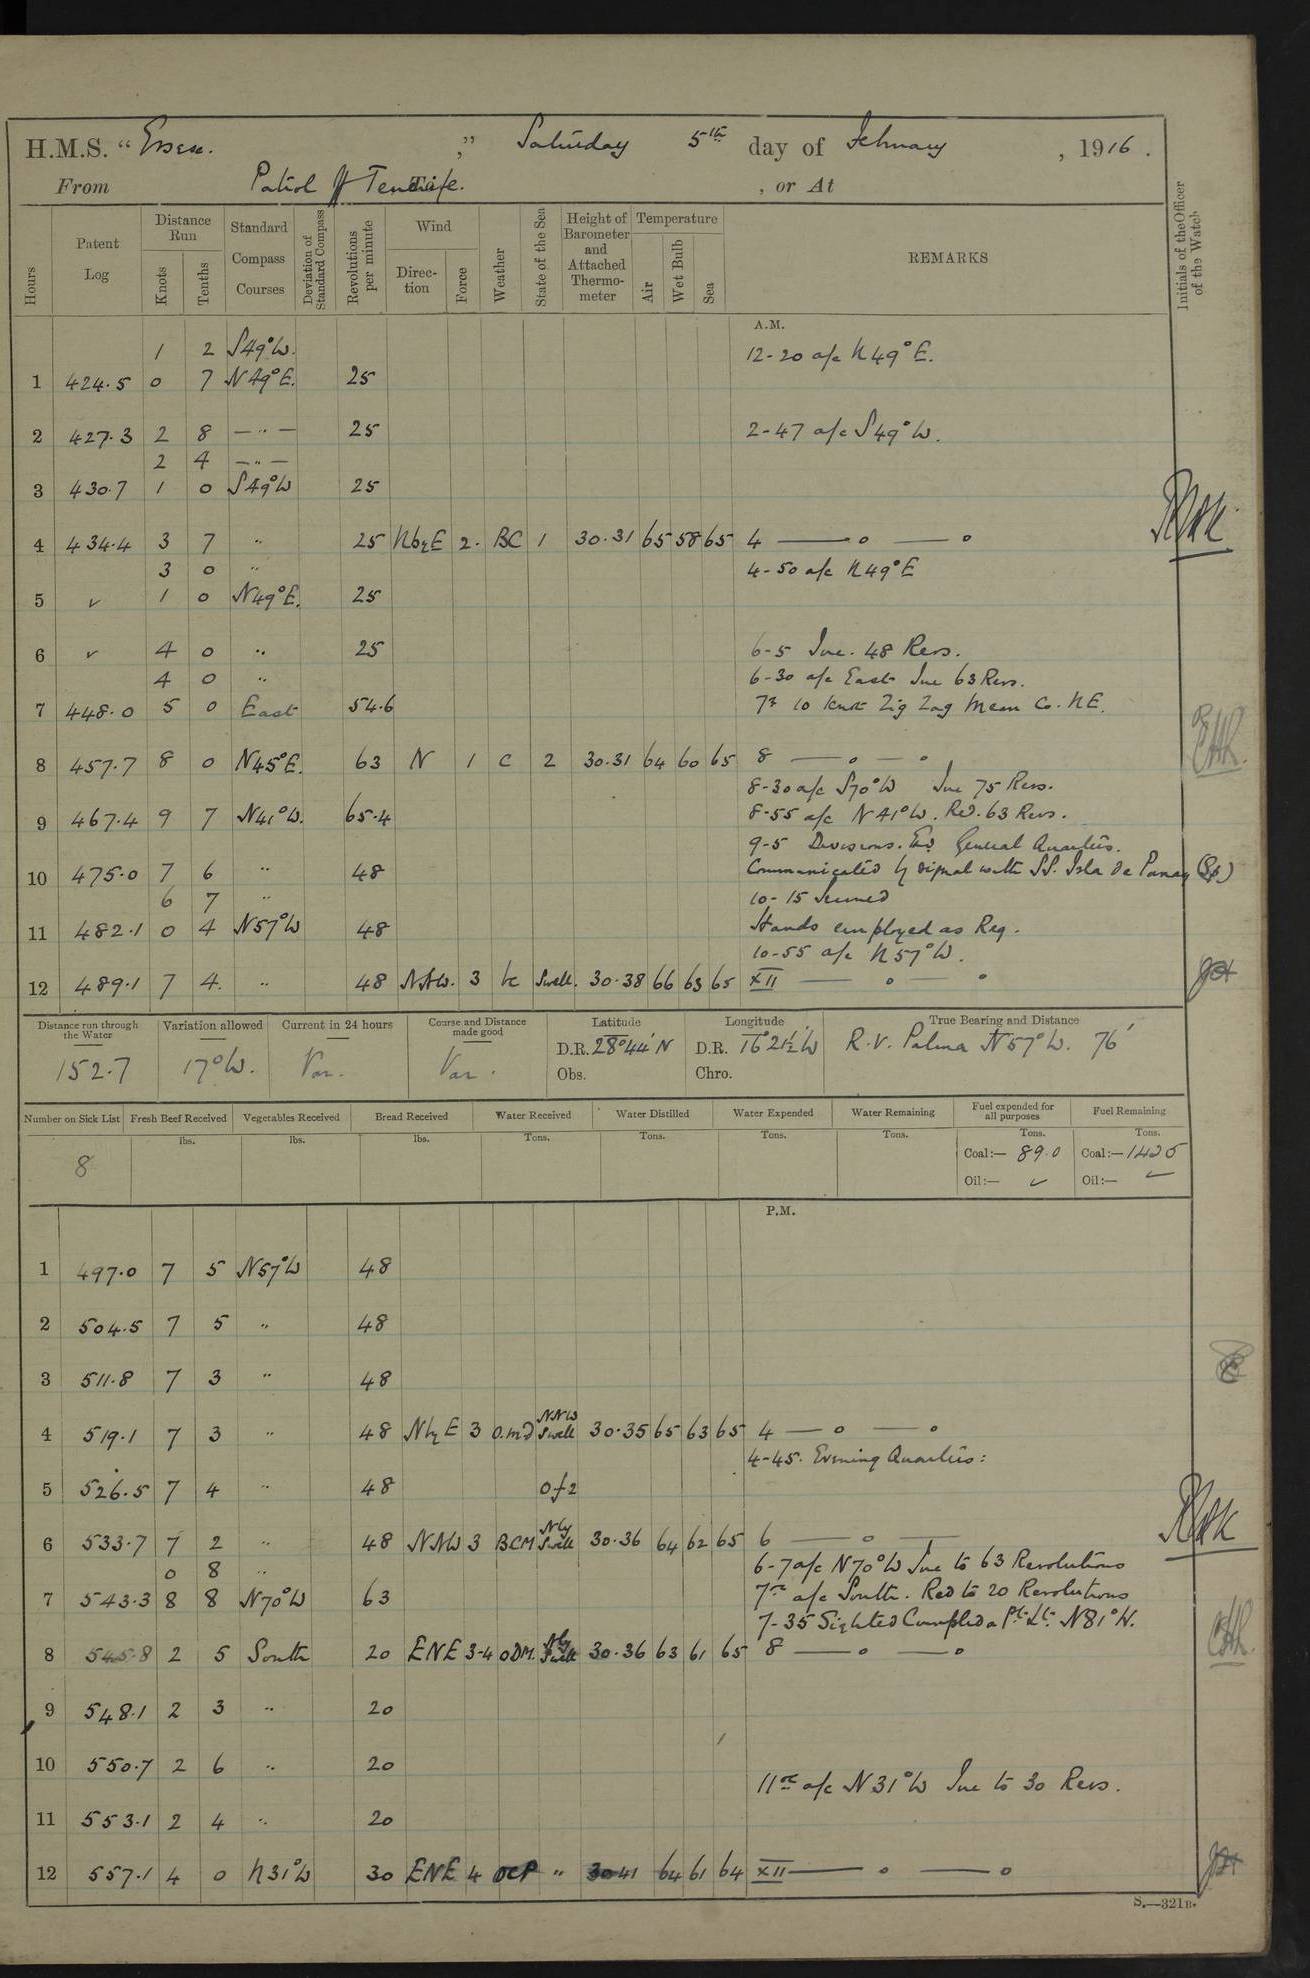 H.M.S. "Essex.," Saturday 5th day of February, 1916.
From Patrol off Teneriffe. , or At
Hours Patent Log Distance Run Knots Tenths Standard Compass Courses Deviation of Standard Compass Revolutions per minute Wind Direction Force Weather State of the Sea Height of Barometer and Attached Thermometer Temperature Air Wet Bulb Sea REMARKS Initials of the Officer of the Watch
A.M.
1 2 S49°W. 12-20 a/c N49°E.
1 424.5 0 7 N49°E. 25
2 427.3 2 8 — " — 25 2-47 a/c S49°W.
2 4 — " —
3 430.7 1 0 S49°W 25
4 434.4 3 7 " 25 NbyE 2. BC 1 30.31 65 58 65 4 —— o —— o
3 0 " 4-50 a/c N49°E
5 ✓ 1 0 N49°E. 25
6 ✓ 4 0 " 25 6-5 Inc. 48 Revs.
4 0 " 6-30 a/c East Inc 63 Revs.
7 448.0 5 0 East 54.6 7.0 10 Knot Zig Zag Mean Co. NE.
8 457.7 8 0 N45°E. 63 N 1 C 2 30.31 64 60 65 8 —— o — o
8-30 a/c S70°W Inc 75 Revs.
9 467.4 9 7 N41°W. 65.4 8-55 a/c N41°W. Red. 63 Revs.
9-5 Divisions. Ex General Quarters.
10 475.0 7 6 " 48 Communicated by signal with SS. Isla de Panay (Sp)
6 7 " 10-15
11 482.1 0 4 N57°W 48 Hands employed as Req.
10-55 a/c N57°W.
12 489.1 7 4. " 48 NNW. 3 bc Swell. 30.38 66 63 65 XII —— o —— o
Distance run through the Water Variation allowed Current in 24 hours Course and Distance made good Latitude Longitude True Bearing and Distance
152.7 17°W. Var. Var. D.R. 28°44'N D.R. 16°21½'W R.V. Palma N57°W. 76'
Obs. Chro.
Number on Sick List Fresh Beef Received Vegetables Received Bread Received Water Received Water Distilled Water Expended Water Remaining Fuel expended for all purposes Fuel Remaining
lbs. lbs. lbs. Tons. Tons. Tons. Tons. Tons. Tons.
8 Coal:— 89.0 Coal:— 1425
Oil:— ✓ Oil:— ✓
P.M.
1 497.0 7 5 N57°W 48
2 504.5 7 5 " 48
3 511.8 7 3 " 48
4 519.1 7 3 " 48 NbyE 3 o.m.d NNW Swell 30.35 65 63 65 4 —— o —— o
4-45. Evening Quarters:
5 526.5 7 4 " 48 of 2
6 533.7 7 2 " 48 NNW 3 BCM Nly Swell 30.36 64 62 65 6 —— o ——
0 8 " 6-7 a/c N70°W Inc to 63 Revolutions
7 543.3 8 8 N70°W 63 7.00 a/c South. Red to 20 Revolutions
7-35 Sighted Cumplida Pt. Lt. N81°W.
8 545.8 2 5 South 20 ENE 3-4 ODM. Nly Swell 30.36 63 61 65 8 —— o —— o
9 548.1 2 3 " 20
10 550.7 2 6 " 20
11.00 a/c N31°W Inc to 30 Revs.
11 553.1 2 4 " 20
12 557.1 4 0 N31°W 30 ENE 4 OCP " 30.41 64 61 64 XII —— o —— o
S.—321B.